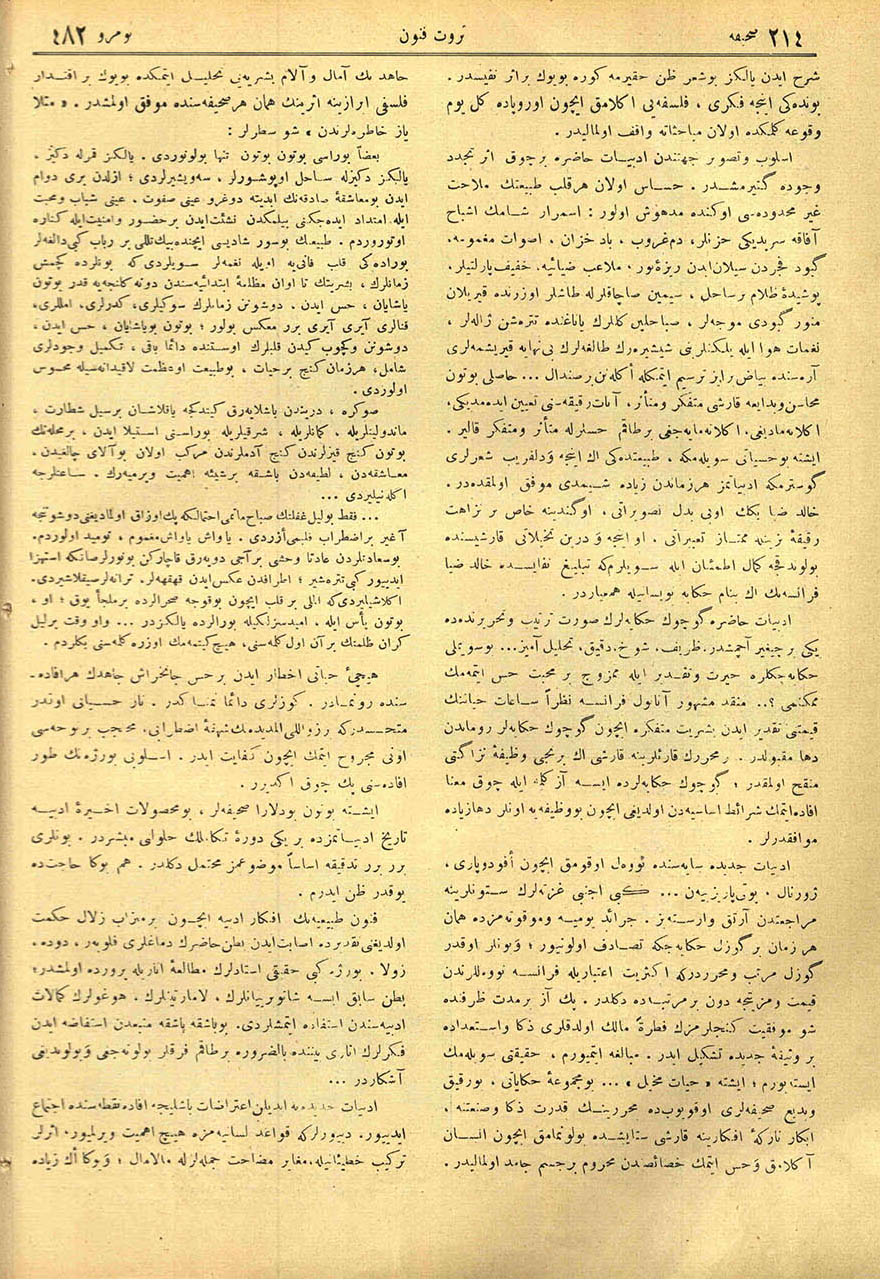 ٢١٤ صحيفه
ثروت فنون
نومرو ٤٨٢
شرح ايدن يالكز بوشعر ظن حقيرمه كوره بويوك براثر نفيسدر .
بونده‌كى اينجه فكرى ، فلسفه‌يى اكلامق ايچون اوروپاده كل يوم
وقوعه كلمكده اولان مباحثاته واقف اولماليدر .
اسلوب وتصوير جهتندن ادبيات حاضره برچوق اثر تجدد
وجوده كتيرمشدر . حساس اولان هرقلب طبيعتك ملاحت
غير محدوده‌سى اوكنده مدهوش اولور : اسمرار شامك اشباح
آفاقه سرپديكى حزنلر ، دم‌غروب ، باد خزان ، اصوات مغمومه،
كبود فجردن سيلان‌ايدن ريزۀنور ، ملاعب ضيائيه، خفيف پارلتيلر،
پوشيدۀ ظلام برساحل ، سيمين صاچاقلرله طاشلر اوزرنده قيريلان
منور كبودى موجه‌لر ، صباحلين كللرك ياناغنده تتره‌شن ژاله‌لر ،
نغمات هوا ايله يلكنلرينى شيشيره‌رك طالغه‌لرك بى‌نهايه قيريشمه‌لرى
آره‌سنده بياض برايز ترسيم ايتمكله اكله‌نن برصندال ... حاصلى بوتون
محاسن‌وبدايعه قارشى متفكر ومتأثر ،
اكلانه‌ماديغى، اكلانه‌مايه‌جغى برطاقم حسلرله متأثر ومتفكر قالير .
ايشته بوحسياتى سويله‌مكه ، طبيعتده‌كى اك اينجه ودلفريب شعرلرى
كوسترمكه ادبياتمز هرزماندن زياده شيمدى موفق اولمقده‌در .
خالد ضيا بكك اوبى بدل تصويراتى ، اوكندينه خاص بر نزاهت
رقيقۀ تزيينه ممتاز تعبيراتى ، او اينجه ودرين تخيلاتى قارشيسنده
بولوندقجه كمال اطمئنان ايله سويلرم‌كه تبليغ نفايسده خالد ضيا
فرانسه‌مك اك بنام حكايه نويسانيله همعياردر .
ادبيات حاضره كوچوك حكايه‌لرك صورت ترتيب وتحريرنده‌ده
يكى برچيغير آچمشدر. ظريف، شوخ، دقيق، تحليل آميز... بوسويملى
حكايه‌جكلره حيرت وتقدير ايله ممزوج بر محبت حس ايتمه‌مك
ممكنمى ؟.. منقد مشهور آناتول فرانسه نظراً ساعات حياتنك
قيمتنى تقدير ايدن بشريت متفكره ايچون كوچوك حكايه‌لر روماندن
دها مقبولدر . محررك قارئلرينه قارشى اك برنجى وظيفۀ نزاكتى
منقح اولمقدر ؛ كوچوك حكايه‌لرده ايسه آز كلمه ايله چوق معنا
افاده‌ايتمك شرائط اساسيه‌دن اولديغى ايچون بووظيفه‌يه اونلر دهازياده
موافقدرلر .
ادبيات جديده سايه‌سنده نووه‌ل اوقومق ايچون أقودوپارى ،
ژورنال ، پوتى‌پاريزيه‌ن ... كبى اجنبى غزته‌لرك ستونلرينه
مراجعتدن آرتق وارسته‌ز . جرائد يوميه وموقوته‌مزده همان
هر زمان بر كوزل حكايه‌جكه تصادف اولونيور ؛ وبونلر اوقدر
كوزل مرتب ومحرردركه اكثريت اعتباريله فرانسه نووه‌للرندن
قيمت ومزيتجه دون برمرتبه‌ده دكلدر . پك آز برمدت ظرفنده
شو موفقيت كنجلرمزك فطرةً مالك اولدقلرى ذكا واستعداده
بر وثيقۀ جديده تشكيل ايدر . مبالغه ايتميورم ، حقيقتى سويله‌مك
ايسته‌يورم ؛ ايشته « حيات مخيل » ... بومجموعۀ حكاياتى ، بورقيق
وبديع صحيفه‌لرى اوقويوب‌ده محررينك قدرت ذكا وصنعتنه ،
ابكار افكارينه قارشى ستايشده بولونمامق ايچون انسان
آكلامق وحس ايتمك خصائصندن محروم برجسم جامد اولماليدر .
جاهد بك آمال وآلام بشريه‌يى تحليل ايتمكده بويوك بر اقتدار
فلسفى ابرازينه اثرينك همان هر صحيفه‌سنده موفق اولمشدر . « مثلا
ياز خاطره‌لرندن » شو سطرلر :
بعضاً بوراسى بوتون بوتون تنها بولونوردى . يالكز قرله دكيز ،
يالكز دكيزله ساحل اوپوشورلر ، سه‌ويشيرلردى ؛ ازلدن برى دوام
ايدن بومعاشقۀ صادقه‌نك ابديته دوغرو عينى صفوت ، عينى شباب ومحبت
ايله امتداد ايده‌جكنى بيلمكدن نشئت‌ايدن برحضور وامنيت‌ايله كناره
اوتوروردم . طبيعتك بوسور شاديسى ايچنده‌بيك‌تللى بر رباب كبى‌دالغه‌لر
بوراده‌كى قلب فانى‌يه اويله نغمه‌لر سويلردى‌كه بونلرده كچمش
زمانلرك ، بشريتك تا اوان مظلمۀ ابتدائيه‌سندن دونه كلنجه‌يه قدر بوتون
ياشايان ، حس ايدن ، دوشونن زمانلرك سوكيلرى، كدرلرى، املللرى،
فنالرى آيرى آيرى برر معكس بولور ؛ بوتون بوياشايان ، حس ايدن ،
دوشونن وكچوب كيدن قلبلرك اوستنده دائما باقى ، تكميل وجودلرى
شامل، هرزمان كنج برحيات ، بوطبيعت اوعظمت لاقيدانه‌سيله محسوس
اولوردى .
صوكره ، دريندن باشلايه‌رق كيتدكجه ياقلاشان برسيل شطارت ،
ماندولينلريله ، كمانلريله ، شرقيلريله بوراسنى استيلا ايدن ، برمحله‌نك
بوتون كنج قيزلرندن كنج آدملرندن مركب اولان بوآلاى چالغيدن ،
معاشقه‌دن ، لطيفه‌دن باشقه برشيئه اهميت ويرميه‌رك . ساعتلرجه
اكله‌نيلردى ...
... فقط بوليل غفلتك صباح ماتمى احتمالكه پك اوزاق اولماديغنى دوشوندكجه
آغير براضطراب قلبمى‌ازردى . ياواش ياواش مغموم ، نوميد اولوردم.
بوسعادتلردن عادتا وحشى برآجى دويه‌رق قاچاركن بونورلرصانكه استهزا
ايدييور كبى تتره‌شير ؛ اطرافدن عكس‌ايدن قهقهه‌لر. ترانه‌لرسيقلاشيردى.
اكلاشيليردى‌كه انالى بر قلب ايچون بوقوجه صحرالرده برملجأ يوق ؛ او ،
بوتون يأس ايله ، اميدسزلكيله بورالرده يالكزدر ... واو وقت برليل
كران ظلمتك برآن اول كله‌سنى، هيچ‌كيتمه‌مك اوزره كله‌سنى بكلردم .
هيچئ حياتى اخطار ايدن برحس جانخراش جاهدك هرافاده-
سنده رونمادر . كوزلرى دائما نمناكدر . تار حسياتى اوقدر
محتجب برنوحه‌سى
اونى مجروح ايتمك ايچون كفايت ايدر . اسلوبى بورژه‌نك طور
افاده‌سنى پك چوق اكديرر .
ايشته بوتون بودلارا صحيفه‌لر ، بومحصولات اخيرۀ ادبيه
تاريخ ادبياتمزده بر يكى دورۀ تكاملك حلولنى مبشردر . بونلرى
برر برر تدقيقه اساساً موضوعمز محتمل دكلدر . هم بوكا حاجت‌ده
يوقدر ظن ايدرم .
فنون طبيعيه‌نك افكار ادبيه ايچون برميزاب زلال حكمت
اولديغى تقديرده اصابت‌ايدن بطن حاضرك دماغلرى فلوبه‌ر ، دوده،
زولا ، بورژه كبى حقيقى استادلرك مطالعۀ آثاريله پرورده اولمشدر؛
بطن سابق ايسه شاتوبريانلرك ، لامارتينلرك ، هوغولرك كمالات
ادبيه‌سندن استفاده ايتمشلردى . بوباشقه باشقه منبعدن استفاضه ايدن
فكرلرك آثارى بيننده بالضروره برطاقم فرقلر بولونه‌جغى وبولونديغى
آشكاردر ...
ادبيات جديده‌يه ايديلن اعتراضات باشليجه افاده نقطه‌سنده اجتماع
ايدييور. دييورلركه قواعد لسانيه‌مزه هيچ اهميت ويرلميور، اثرلر
تركيب خطيئاتيله، مغاير فصاحت جمله‌لرله مالامال ؛ وبوكا اك زياده